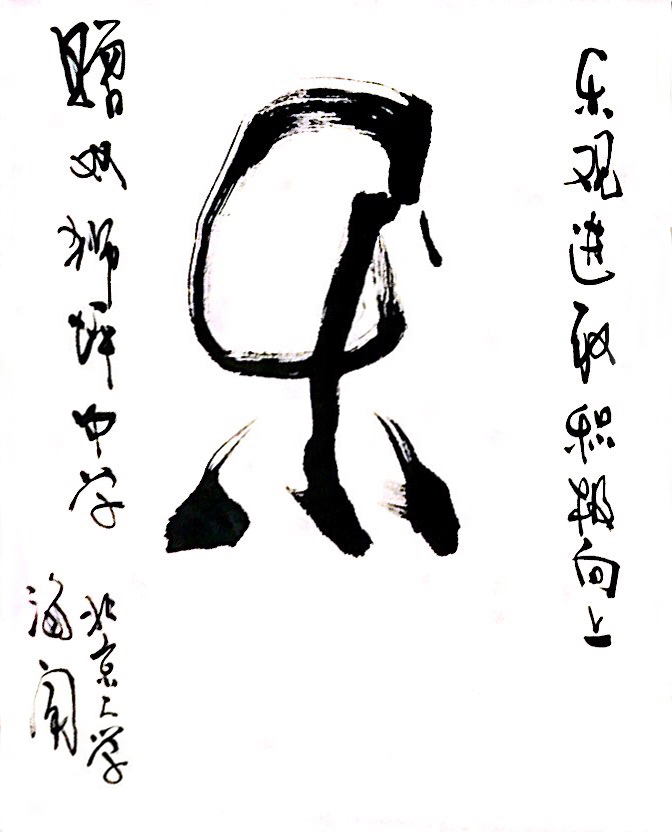 乐观进取积极向上
乐
赠双狮坪中学
北京大学
海闻